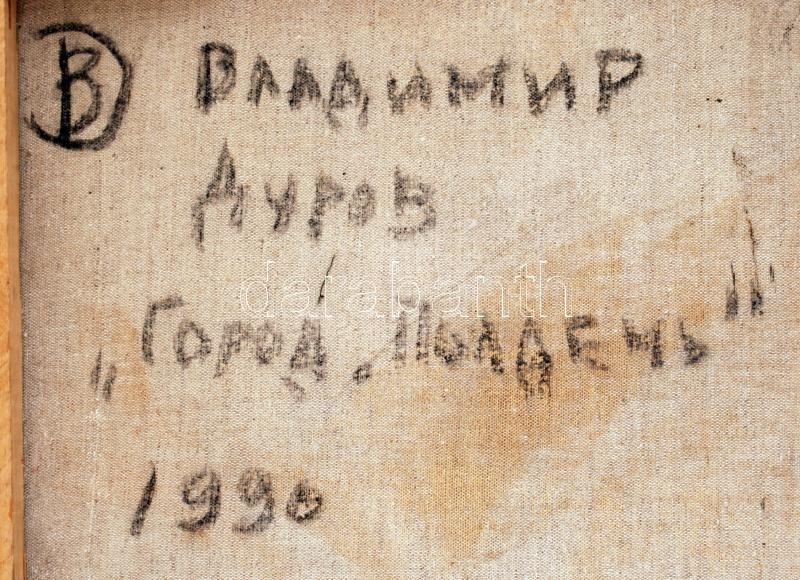 В ВЛАДИМИР
ДУРОВ
darabanth
„ГОРОД. ПОЛДЕНЬ"
1990